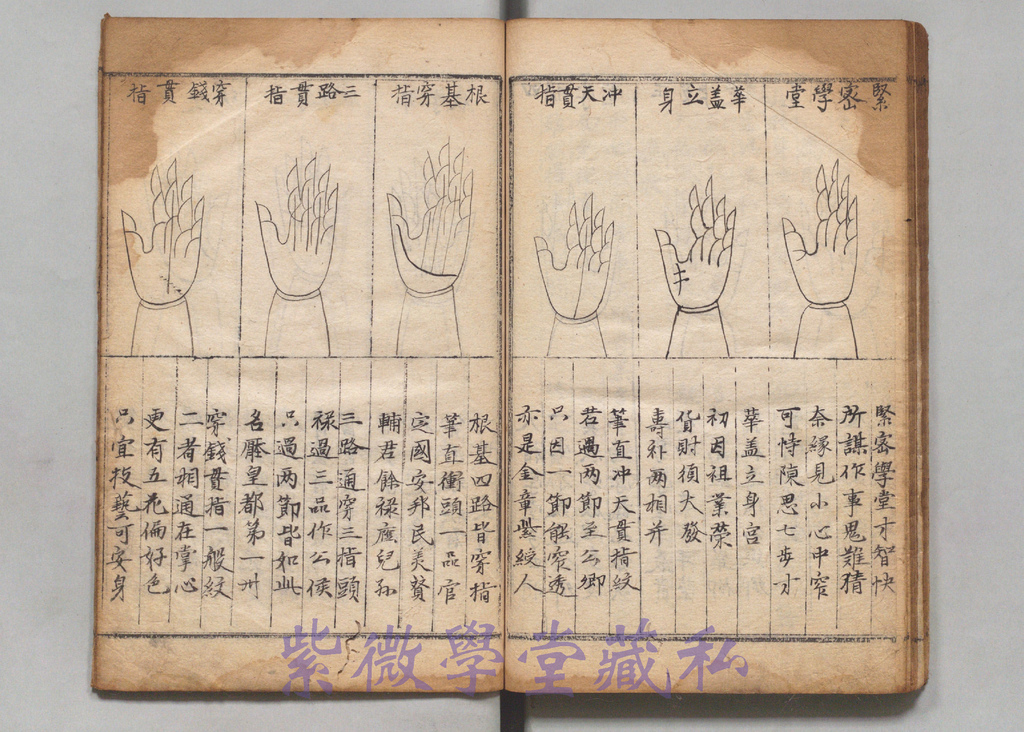 緊密學堂
華盖立身
冲天貫指
緊密學堂才智快
所謀作事鬼難猜
奈緣見小心中窄
可恃陳思七步才
華盖立身宮
初因祖業榮
貨財須大發
壽补两相并
筆直冲天貫指紋
若過两節至公卿
只因一節能穿透
亦是金章紫綬人
根基穿指
三路貫指
穿錢貫指
根基四路皆穿指
筆直衝頭一品官
定國安邦民美贊
輔君餘禄應兒孫
三路通穿三指頭
禄過三品作公侯
只過两節皆如此
名壓皇都第一州
穿錢貫指一般紋
二者相通在掌心
更有五花偏好色
只宜技藝可安身
紫微學堂藏私